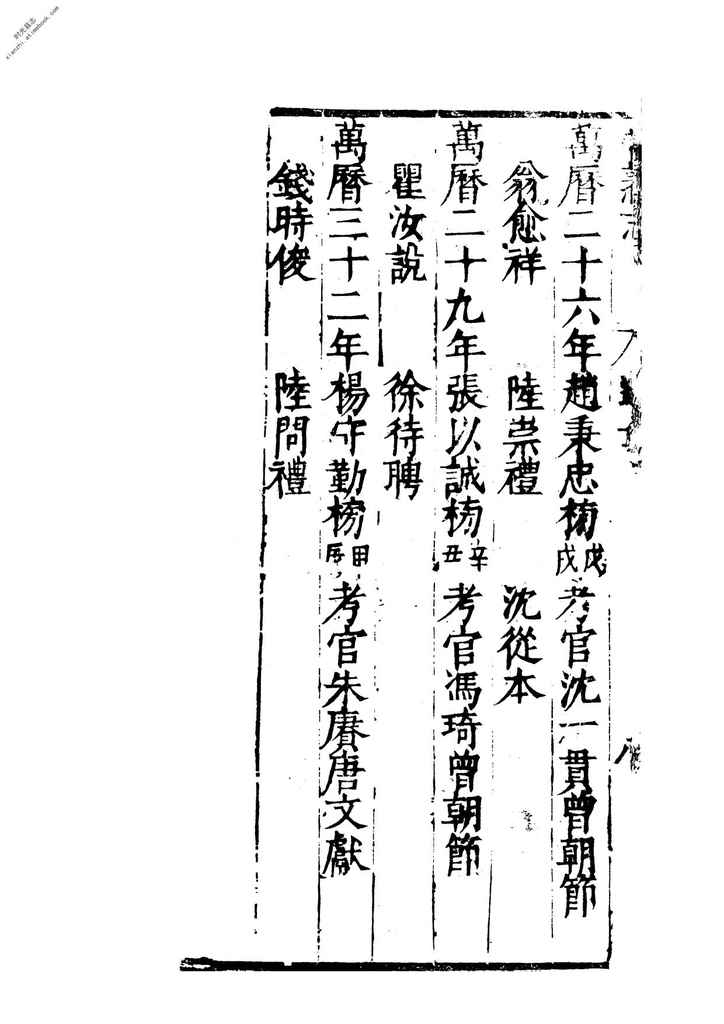 萬曆二十六年趙秉忠榜戊戌考官沈一貫曾朝節
翁愈祥 陸崇禮 沈從本
萬曆二十九年張以誠榜辛丑考官馮琦曾朝節
瞿汝說 徐待聘
萬曆三十二年楊守勤榜甲辰考官朱賡唐文獻
錢時俊 陸問禮
时光县志
xianzhi.atimebook.com